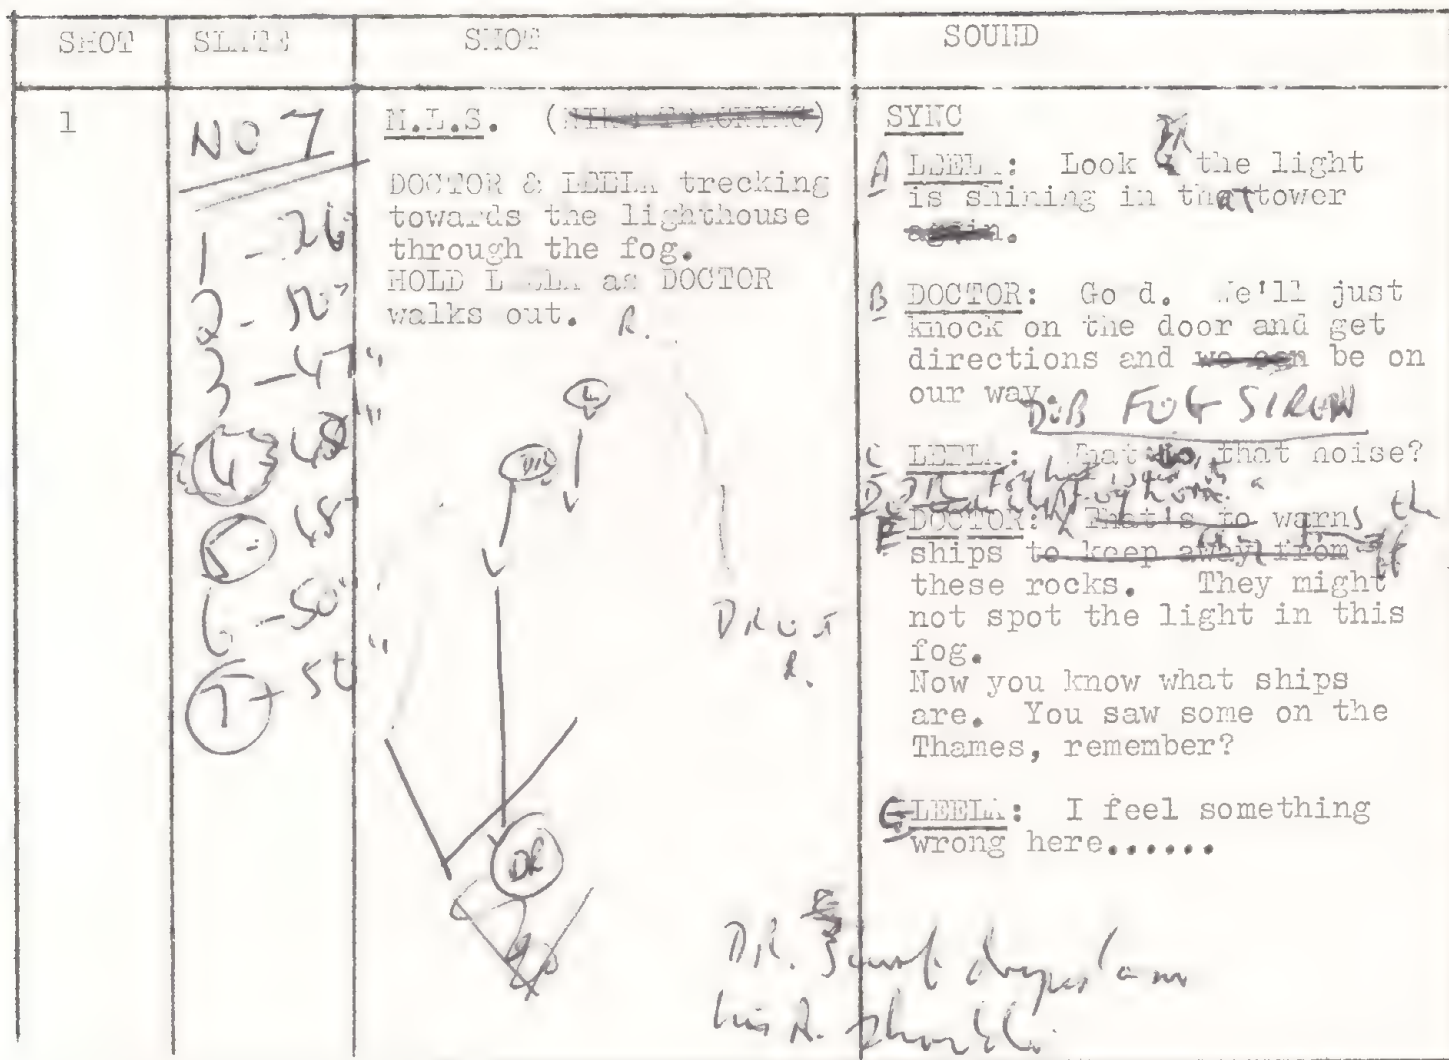 SHOT SLATE SHOT SOUND
1
NO 7
1 - 26
2 - 50"
3 - 47"
4 48"
5 - 48"
6 - 50"
7 - 50"
M.L.S.
DOCTOR & LEELA trecking
towards the lighthouse
through the fog.
HOLD LEELA as DOCTOR
walks out. R.
L
DR
DR OUT
R.
DR
SYNC
A LEELA: Look DR the light
is shining in that tower
again.
B DOCTOR: Good. We'll just
knock on the door and get
directions and we can be on
our way.
DUB FOG SIREN
C LEELA: What that noise?
D DR
E DOCTOR: That's to warns the
ships to keep away from off
these rocks. They might
not spot the light in this
fog.
Now you know what ships
are. You saw some on the
Thames, remember?
G LEELA: I feel something
wrong here......
DR. Scarf drapes
his R. shoulder